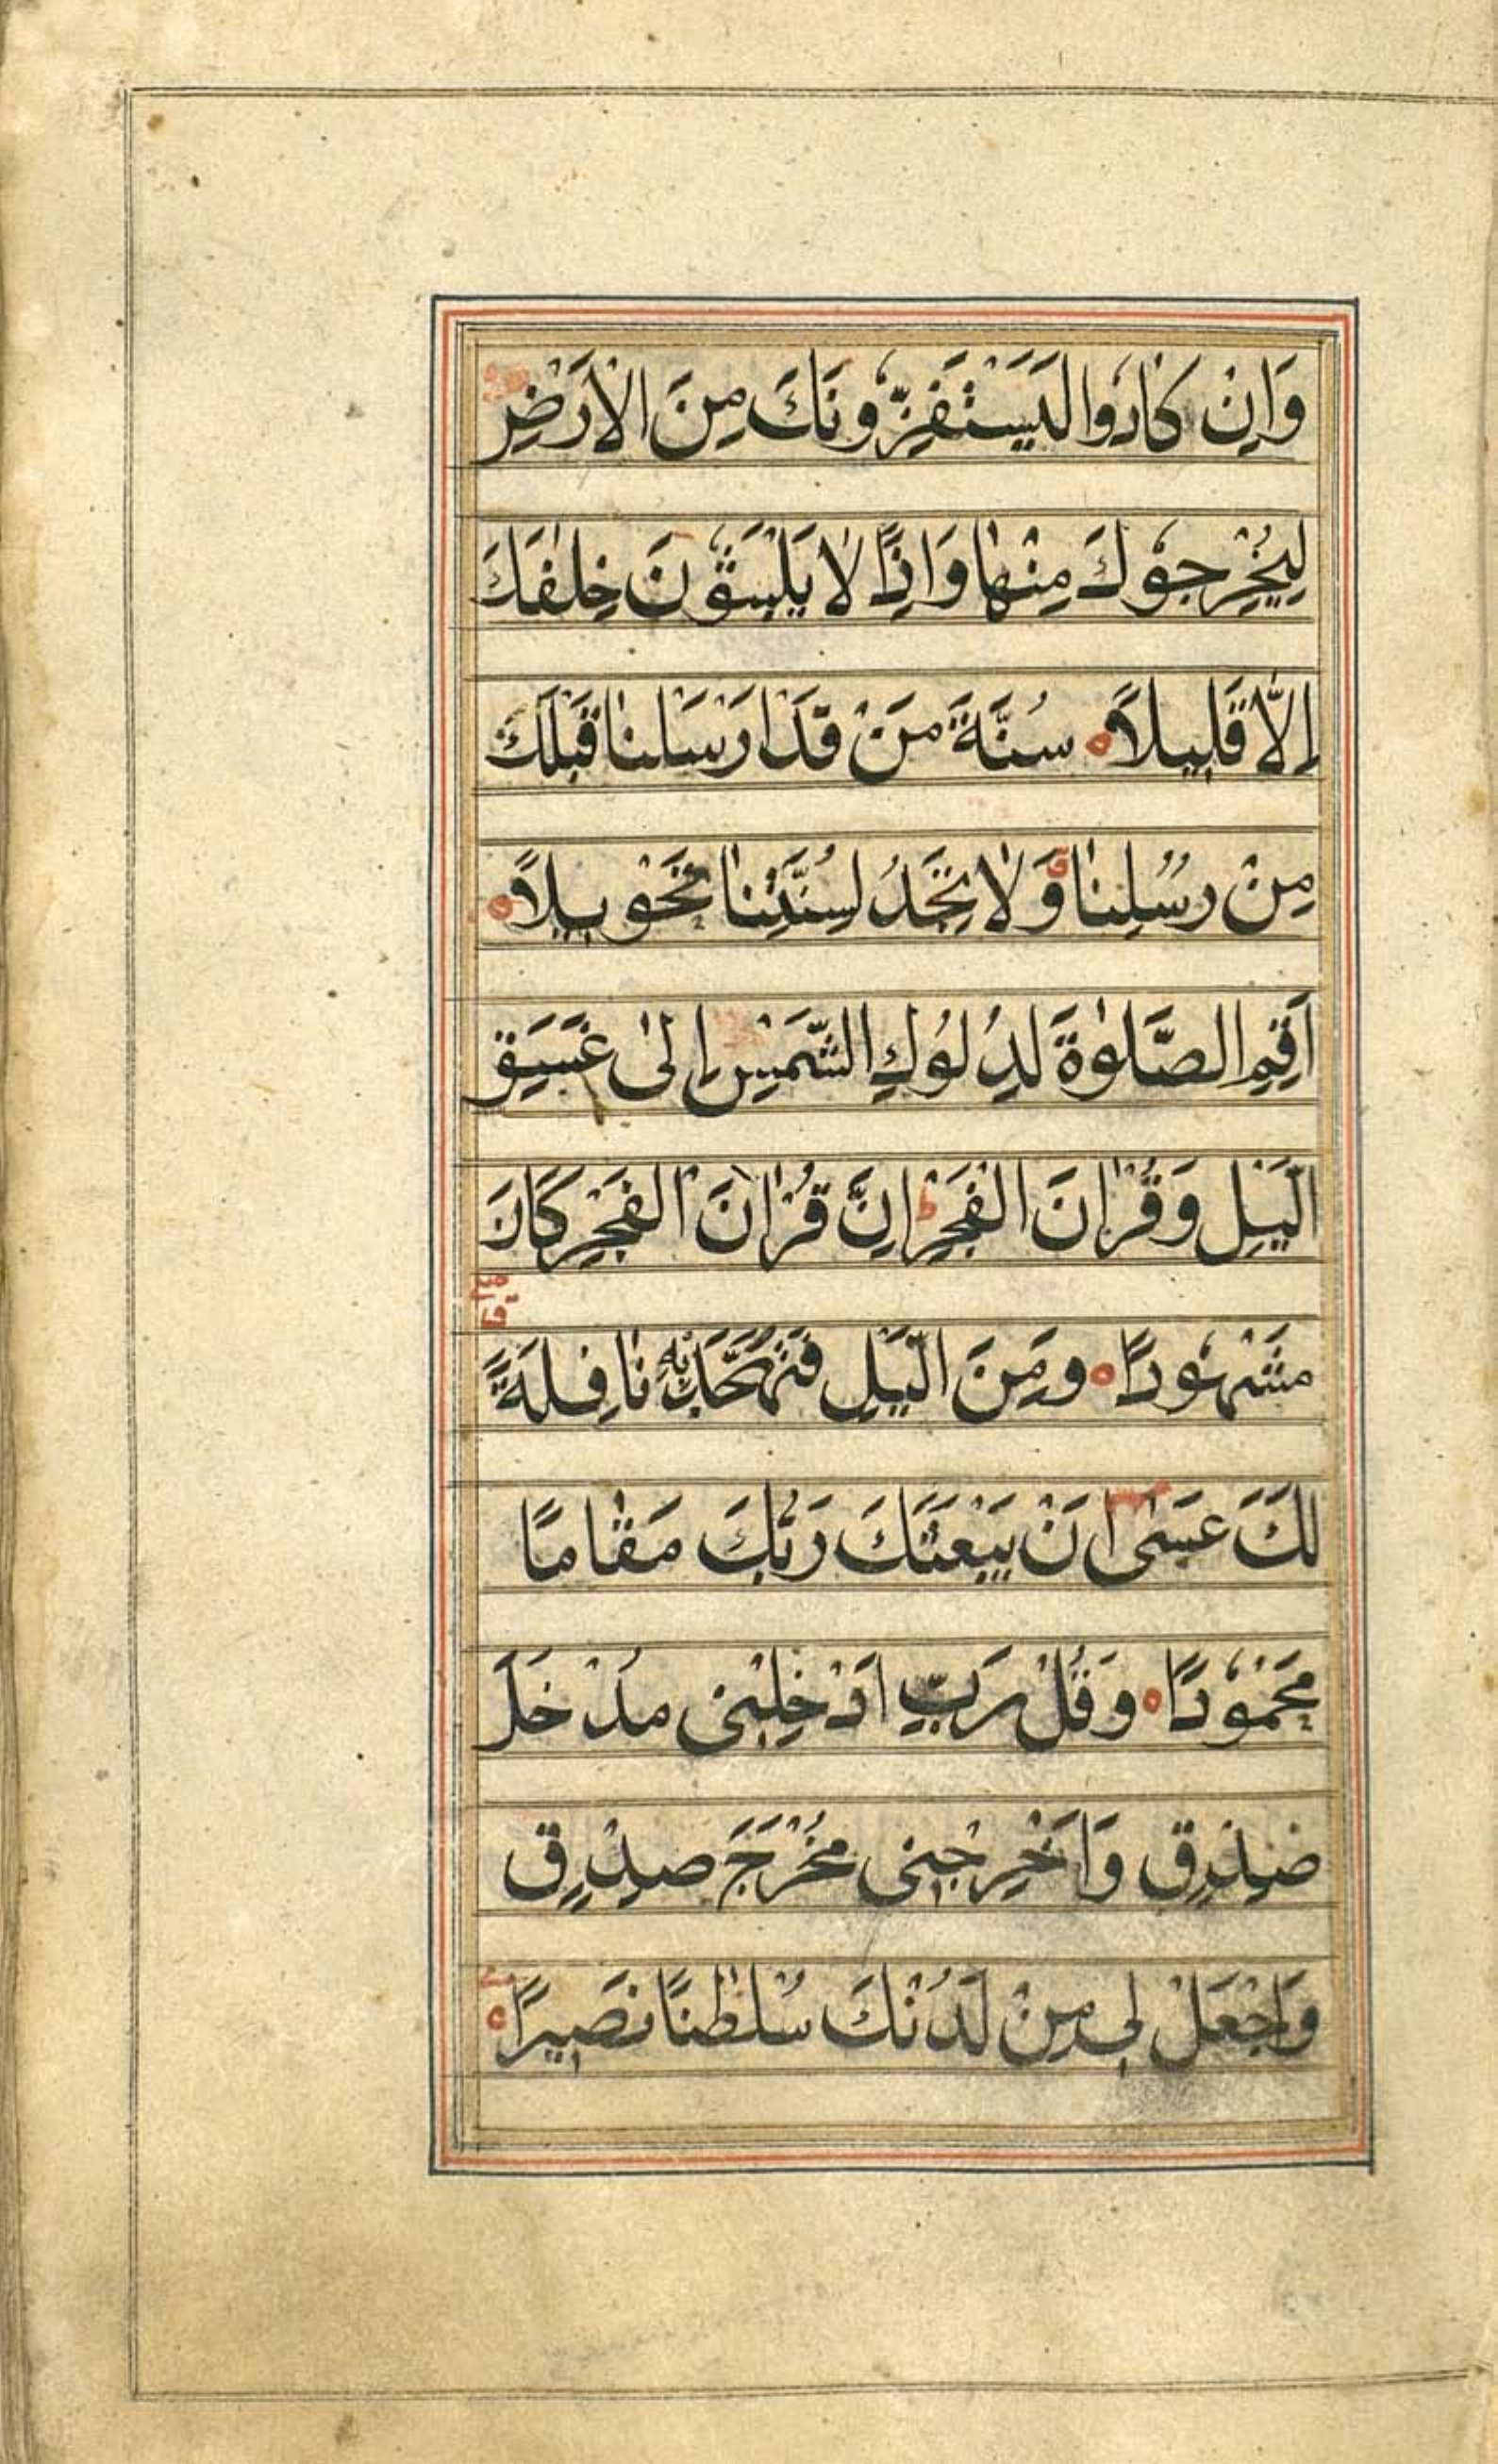 وَاِنْ كَادُوا لَيَسْتَفِزُّونَكَ مِنَ الْاَرْضِ
لِيُخْرِجُوكَ مِنْهَا وَاِذًا لَا يَلْبَثُونَ خِلٰفَكَ
اِلَّا قَلِيلًا ۝ سُنَّةَ مَنْ قَدْ اَرْسَلْنَا قَبْلَكَ
مِنْ رُسُلِنَا وَلَا تَجِدُ لِسُنَّتِنَا تَحْوِيلًا ۝
اَقِمِ الصَّلٰوةَ لِدُلُوكِ الشَّمْسِ اِلٰى غَسَقِ
الَّيْلِ وَقُرْاٰنَ الْفَجْرِ ط اِنَّ قُرْاٰنَ الْفَجْرِ كَانَ
مَشْهُودًا ۝ وَمِنَ الَّيْلِ فَتَهَجَّدْ بِهٖ نَافِلَةً
لَكَ عَسٰى اَنْ يَبْعَثَكَ رَبُّكَ مَقَامًا
مَحْمُودًا ۝ وَقُلْ رَبِّ اَدْخِلْنِى مُدْخَلَ
صِدْقٍ وَاَخْرِجْنِى مُخْرَجَ صِدْقٍ
وَاجْعَلْ لِى مِنْ لَدُنْكَ سُلْطٰنًا نَصِيرًا ۝